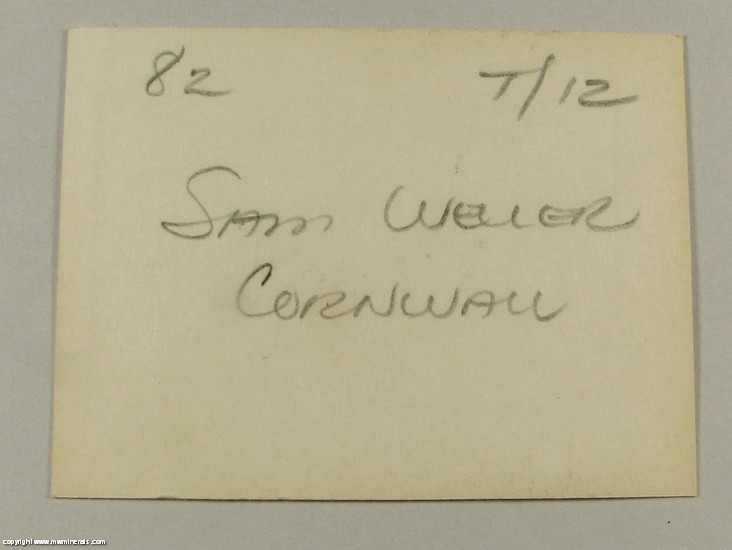 82 T/12
SAM WEILER
CORNWALL
copyright www.mwminerals.com